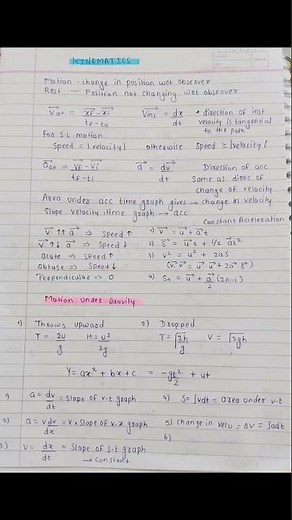 KINEMATICS
Motion - change in position wrt observer
Rest -- Position not changing wrt observer
V⃗av = (x⃗f - x⃗i)/(tf - ti) V⃗ins = dx⃗/dt * direction of inst velocity is tangential to the path
For S.L motion
Speed = |velocity| otherwise Speed ≥ |velocity|
a⃗av = (v⃗f - v⃗i)/(tf - ti) a⃗ = dv⃗/dt Direction of acc Same as direc of change of velocity
Area under acc time graph gives → change in velocity
Slope velocity time graph → acc
Constant Acceleration
V⃗ ↑↑ a⃗ ⇒ Speed ↑ 1) V⃗ = u⃗ + a⃗t
V⃗ ↑↓ a⃗ ⇒ Speed ↓ 2) S⃗ = u⃗t + 1/2 a⃗t²
Acute ⇒ Speed ↑ 3) v² = u² + 2as
Obtuse ⇒ Speed ↓ (v⃗.v⃗ = u⃗.u⃗ + 2a⃗.s⃗)
Perpendicular ⇒ 0 4) Sn = u⃗ + a⃗/2 (2n-1)
Motion under Gravity
1) Throws upward 2) Dropped
T = 2u/g H = u²/2g T = √(2h/g) V = √2gh
Y = ax² + bx + c = -gt²/2 + ut
1) a = dv/dt = slope of v-t graph 4) S = ∫vdt = area under v-t
2) a = v dv/dx = v x slope of v-x graph 5) change in velo = ΔV = ∫adt
6)
3) V = dx/dt = Slope of s-t graph
→ constant